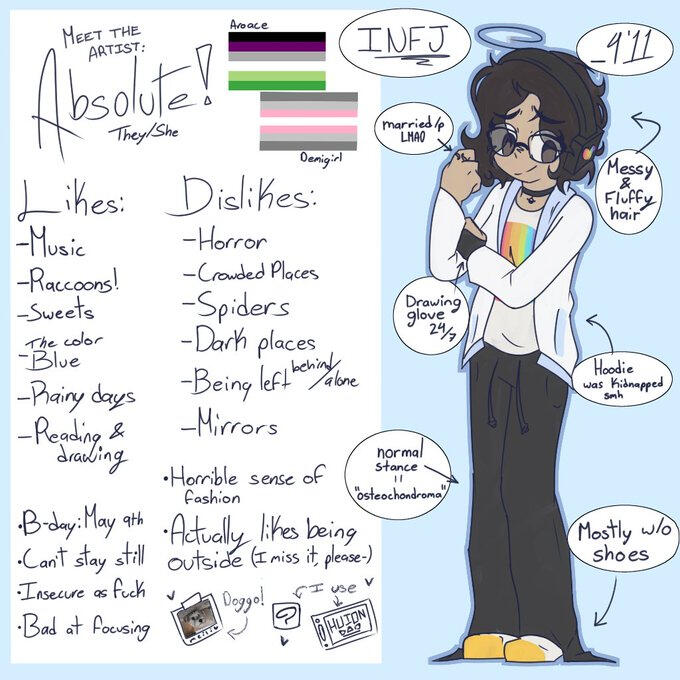 MEET THE
ARTIST:
Absolute!
They/She
Aroace
Demigirl
INFJ
_4'11
married/p
LMAO
Messy
&
Fluffy
hair
Likes:
-Music
-Raccoons!
-Sweets
-The color
Blue
-Rainy days
-Reading &
drawing
Dislikes:
-Horror
-Crowded Places
-Spiders
-Dark places
-Being left behind/alone
-Mirrors
Drawing
glove
24/7
Hoodie
was Kidnapped
smh
normal
stance
=
"osteochondroma"
Mostly w/o
shoes
•B-day: May 9th
•Can't stay still
•Insecure as fuck
•Bad at focusing
•Horrible sense of
fashion
•Actually likes being
outside (I miss it, please-)
Doggo!
I use
?
HUION